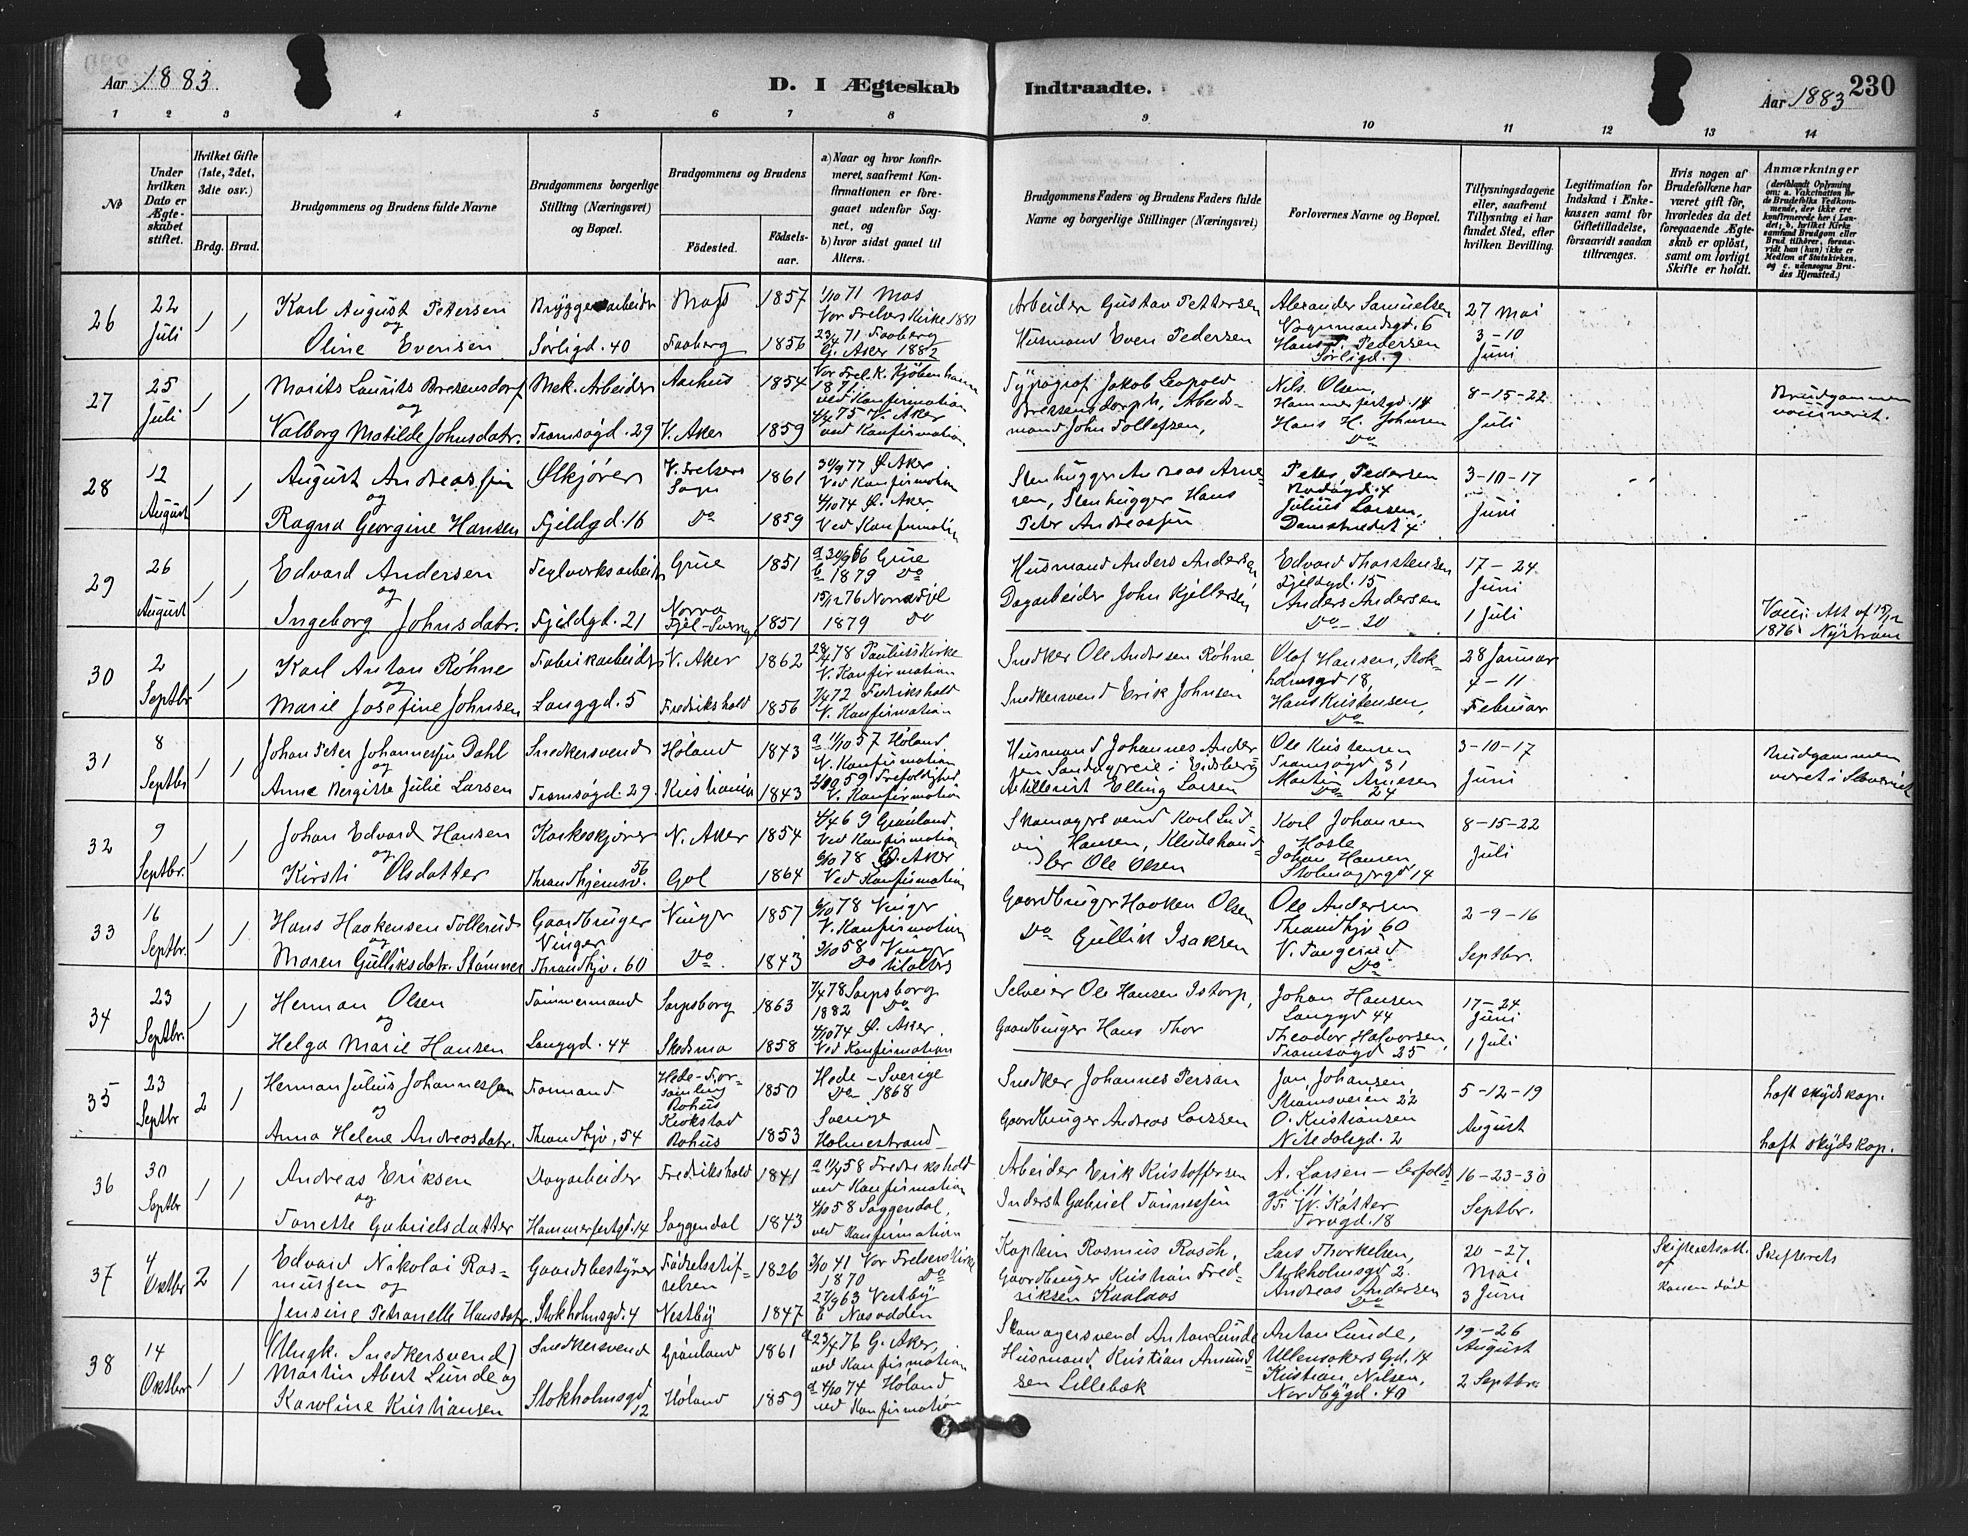 Aar 1883.
D. I Ægteskab Indtraadte.
Aar 1883
230
1 2 3 4 5 6 7 8 9 10 11 12 13 14
No
Under hvilken Dato er Ægteskabet stiftet.
Hvilket Gifte (1ste, 2det, 3die osv.)
Brdg. Brud.
Brudgommens og Brudens fulde Navne
Brudgommens borgerlige Stilling (Næringsvei) og Bopæl.
Brudgommens og Brudens
Födested.
Födsels-aar.
a) Naar og hvor konfirmeret, saafremt Konfirmationen er foregaaet udenfor Sognet, og
b) hvor sidst gaaet til Alters.
Brudgommens Faders og Brudens Faders fulde Navne og borgerlige Stillinger (Næringsvei)
Forlovernes Navne og Bopæl.
Tillysningsdagene eller, saafremt Tillysning ei har fundet Sted, efter hvilken Bevilling.
Legitimation for Indskud i Enkekassen samt for Giftetilladelse, forsaavidt saadan tiltrænges.
Hvis nogen af Brudefolkene har været gift för, hvorledes da det foregaaende Ægteskab er oplöst, samt om lovligt Skifte er holdt.
Anmærkninger
26
22 Juli
1 1
Karl August Pettersen
og
Oline Evensen
Bryggearbeider
Sörligd. 40
Moss 1857
Faaberg 1856
1/10 71 Mos
Vor Frelsers Kirke 1881
23/4 71 Faaberg
G. Aker 1882
Arbeider Gustav Pettersen
Husmand Even Pedersen
Alexander Samuelsen
Vognmandsgd. 6
Hans P. Pedersen
Sörligd. 9
27 Mai
3-10
Juni
27
25 Juli
1 1
Morits Laurits Bresensdorf
og
Valborg Matilde Johnsdatr.
Mek. Arbeider
Tromsögd. 29
Aarhus 1854
V. Aker 1859
Vor Frel. K. Kjöbenhavn
1871
ved Konfirmation
4/4 75 V. Aker
ved Konfirmation
Typograf Jakob Leopold
Bressensdorph, Arbeids-
mand John Tollefsen,
Nils Olsen,
Hammerfestgd. 14
Hans H. Johnsen
Do
8-15-22
Juli
Brudgommen
28
12 August
1 1
August Andreassen
og
Ragna Georgine Hansen
Ölkjörer
Fjeldgd. 16
V. Frelsers
Sogn 1861
Do 1859
30/9 77 Ö. Aker
Ved Konfirmation
4/10 74 Ö. Aker.
Ved Konfirmation
Stenhugger Andreas Arne-
sen, Stenhugger Hans
Peter Andreassen
Peter Pedersen
Bodögd. 4
Julius Larsen,
Damstredet 4
3-10-17
Juni
29
26 August
1 1
Edvard Andersen
og
Ingeborg Johnsdatr.
Teglverksarbeider
Fjeldgd. 21
Grue 1851
Norra
Fjel-Sverige 1851
a 30/9 66 Grue
b 1879 Do
15/12 76 Norra Fjel
1879 Do
Husmand Anders Andersen
Dagarbeider John Kjellersen
Edvard Thorstensen
Fjeldgd. 15
Anders Andersen
Do - 20
17-24
Juni
1 Juli
Vacc. Att. af 15/12
1876 Nyström
30
2 Septbr
1 1
Karl Anton Röhne
og
Marie Josefine Johnsen
Fabrikarbeider
Langgd. 5
V. Aker 1862
Fredrikshald 1856
28/4 78 Paulus Kirke
V. Konfirmation
7/4 72 Fredrikshald
V. Konfirmation
Snedker Ole Andresen Röhne
Snedkersvend Erik Johnsen
Olof Hansen, Stok-
holmsgd 18,
Hans Kristensen,
Do
28 Januar
4-11
Februar
31
8 Septbr
1 1
Johan Peter Johannessen Dahl
og
Anne Birgitte Julie Larsen
Snedkersvend
Tromsögd. 29.
Höland 1843
Kristiania 1843
a 11/10 57 Höland
V. Konfirmation
2/10 59 Trefoldighed
V. Konfirmation
Husmand Johannes Ander
sen Sandagereie i Eidsberg
Artillerist Elling Larsen
Ole Kristensen
Tromsögd 31
Martin Arnesen
Do 24
3-10-17
Juni
Brudgommen
32
9 Septbr.
1 1
Johan Edvard Hansen
og
Kirsti Olsdatter
Karkeskjörer
Throndhjemsv. 56
N. Aker 1854
Gol 1864
4/4 69 Grönland
Ved Konfirmation
6/10 78 Ö. Aker
Ved Konfirmation
Skomagersvend Karl Lud-
vig Hansen, Kludehand-
ler Ole Olsen
Karl Johansen
Hasle
Johan Hansen
Skomagergd 14
8-15-22
Juli
33
16 Septbr.
1 1
Hans Haakensen Tollerud
og
Maren Gulliksdatr. Stömner
Gaardbruger
Vinger
Throndhjv. 60
Vinger 1857
Do 1843
6/10 78 Vinger
V. Konfirmation
3/10 58 Vinger
Do tilalters
Gaardbruger Haaken Olsen
Do Gullik Isaksen
Ole Andersen
Throndhjv 60
V. Tangerud
Do
2-9-16
Septbr.
34
23 Septbr.
1 1
Herman Olsen
og
Helga Marie Hansen
Tömmermand
Langgd. 44
Sarpsborg 1863
Skedsmo 1858
7/4 78 Sarpsborg
1882 Do
4/10 74 Ö. Aker.
Ved Konfirmation
Selveier Ole Hansen Istorp,
Gaardbruger Hans Thor
Johan Hansen
Langgd 44
Theodor Halvorsen,
Tromsögd 25
17-24
Juni
1 Juli
35
23 Septbr
2 1
Herman Julius Johannessen
og
Anna Helene Andreasdatr.
Formand
Throndhjv. 54
Hede-For-
samling
Bohus 1850
Krokstad
Bohus 1853
Hede - Sverige
Do 1868
Sverige
Holmestrand
Snedker Johannes Persan
Gaardbruger Andreas Larssen
Jan Johansen,
Strömsveien 22
O. Kristiansen
Nitedalsgd. 2
5-12-19
August
haft skydskop.
haft skydskop.
36
30 Septbr
1 1
Andreas Eriksen
og
Tonette Gabrielsdatter
Dagarbeider
Hammerfestgd. 14
Fredrikshald 1841
Soggendal 1843
a 11/4 58 Fredrikshald
ved Konfirmation
4/10 58 Soggendal,
ved Konfirmation
Arbeider Erik Kristoffersen
Inderst Gabriel Tönnessen
A. Larsen - Lerfolds-
gd. 11
Fr. W. Kötter
Torvgd. 18
16-23-30
Septbr.
37
4 Oktbr
2 1
Edvard Nikolai Ras-
mussen og
Jensine Petronelle Hansdatr.
Gaardsbestyrer
Stokholmsgd. 4
Födselsstif-
telsen 1826
Vestby 1847
3/10 41 Vor Frelsers Kirke
1870 Do
27/9 63 Vestby
b Nasodden
Kaptein Rasmus Rasch.
Gaardbruger Kristian Fred-
riksen
Lars Thorkelsen,
Stokholmsgd 2.
Andreas Andersen
Do
20-27.
Mai
3 Juni
Skifteretsatt.
af
Konen död
Skifterets
38
14 Oktbr
1 1
(Ungk. Snedkersvend)
Martin Abert Lunde og
Karoline Kristiansen
Snedkersvend
Stokholmsgd
12
Grönland 1861
Höland 1859
a 23/4 76 G. Aker,
ved Konfirmation
a 4/10 74 Höland
ved Konfirmation
Skomagersvend Anton Lunde
Husmand Kristian Amund-
sen Lillebæk
Anton Lunde,
Ullensakers Gd. 14
Kristian Nilsen,
Nordbygd. 40
19-26
August
2 Septbr.